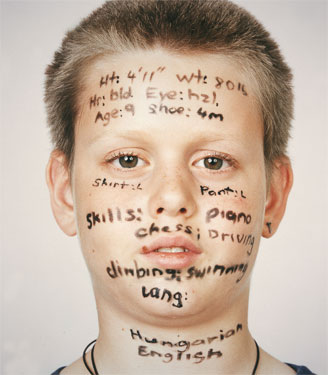 Ht: 4'11" Wt: 80lb
Hr: bld Eye: hzl,
Age: 9 Shoe: 4m
Shirt: L Pant: L
Skills: piano
chess; DRIVING
climbing; swimming
Lang:
Hungarian
English